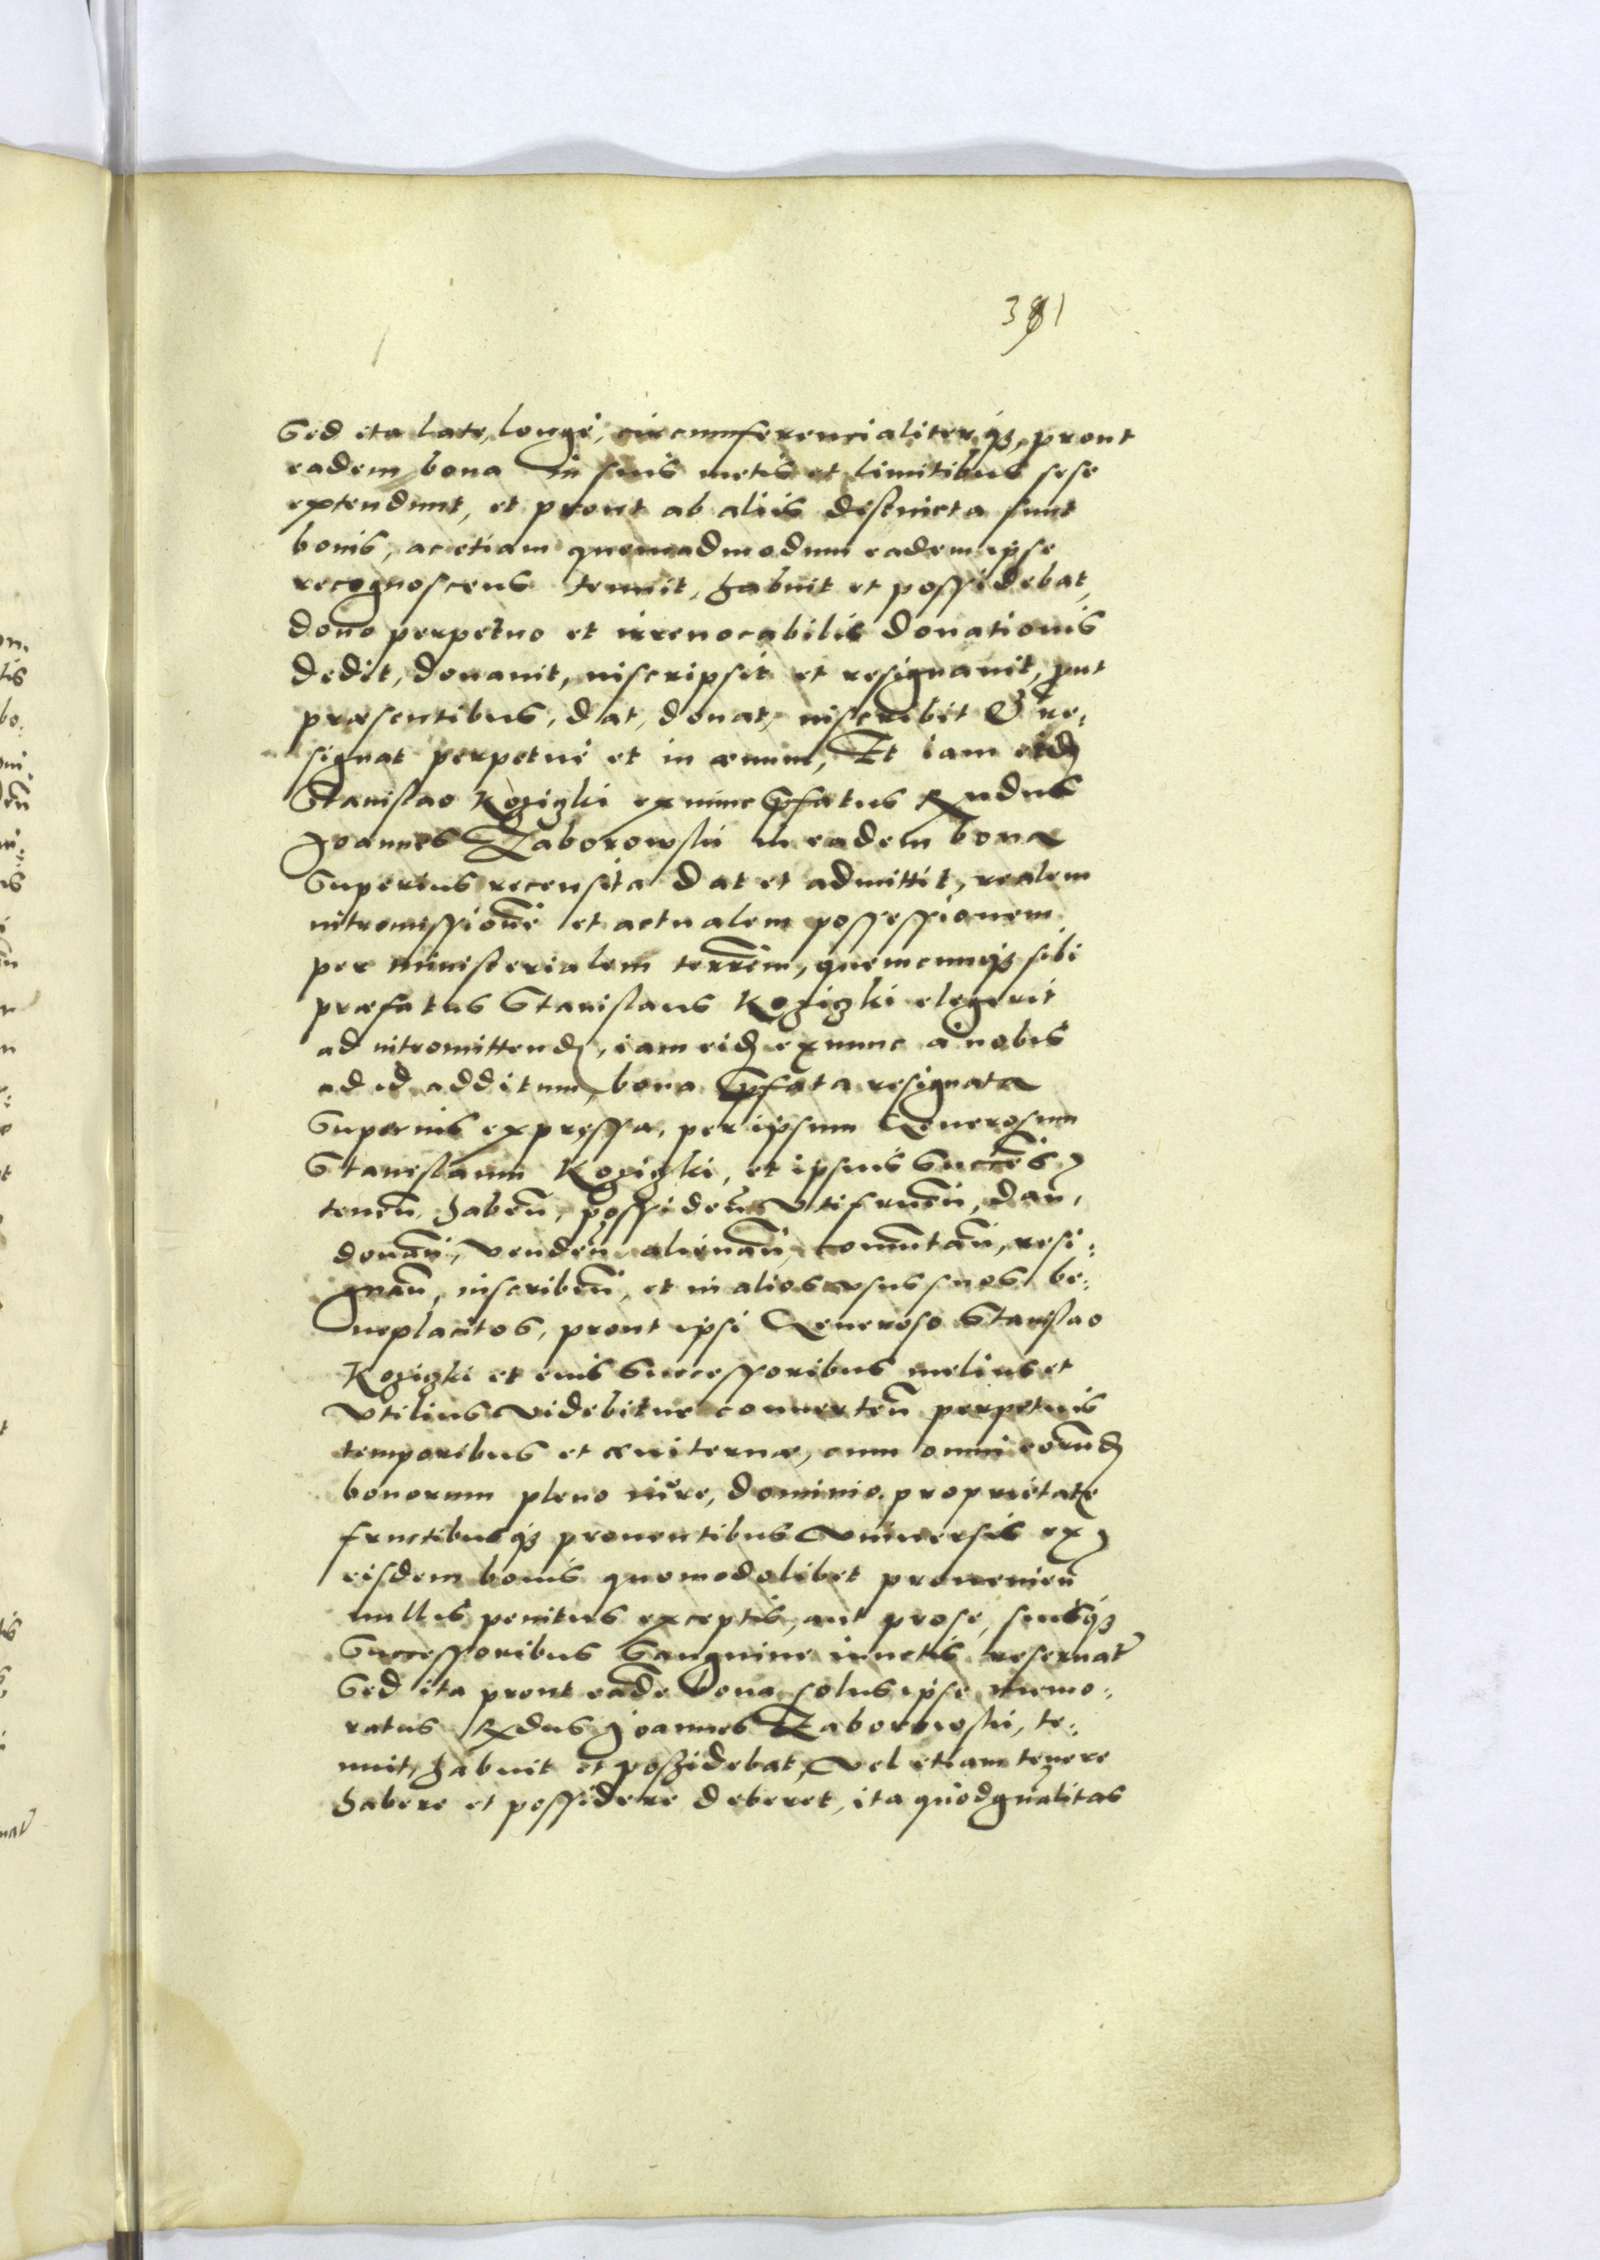 381
Sed ita late, longe, circumferencialiterq3, prout
eadem bona in suis metis et limitibus sese
extendunt, et prout ab aliis distincta sunt
bonis, ac etiam quemadmodum eadem ipse
recognoscens tenuit, habuit et possidebat,
dono perpetuo et irreuocabilis donationis
dedit, donauit, inscripsit et resignauit, put
præsentibus, dat, donat, inscribit & re:
signat perpetue et in æuum, Et iam eid
Stanislao Kozigki ex nunc pfatus Rndus
Joannes Zaborowski in eadem bona
Superius recensita dat et admittit, realem
intromissionē et actualem possessionem
per ministerialem terrēm, quemcunq3 sibi
præfatus Stanislaus Kozigki elegerit
ad intromittend, iam eid ex nunc a nobis
ad id additum, bona pfata resignata
Superius expressa, per ipsum Generosum
Stanislaum Kozigki, et ipsius Succēs
tenēn, habēn, possidēn Vtifruēn, dan,
donān, vendēn alienān, comutān, resi:
gnān, inscribēn, et in alios vsus suos be:
neplacitos, prout ipsi Generoso Stanislao
Kozigki et eius Successoribus melius et
Vtilius Videbitur conuertēn perpetuis
temporibus et æuiternæ, cum omni eorūd
bonorum pleno iure, dominio proprietate
fructibusq3 prouentibus Vniuersis ex
eisdem bonis quomodolibet prouenien
nullis penitus exceptis, aut pro se, suisq3
Successoribus Sanguine iunctis reseruat
Sed ita prout eadē bona solus ipse memo:
ratus Rdus Joannes Zaborowski, te:
nuit, habuit et possidebat, Vel etiam tenere
habere et possidere deberet, ita quod gnalitas